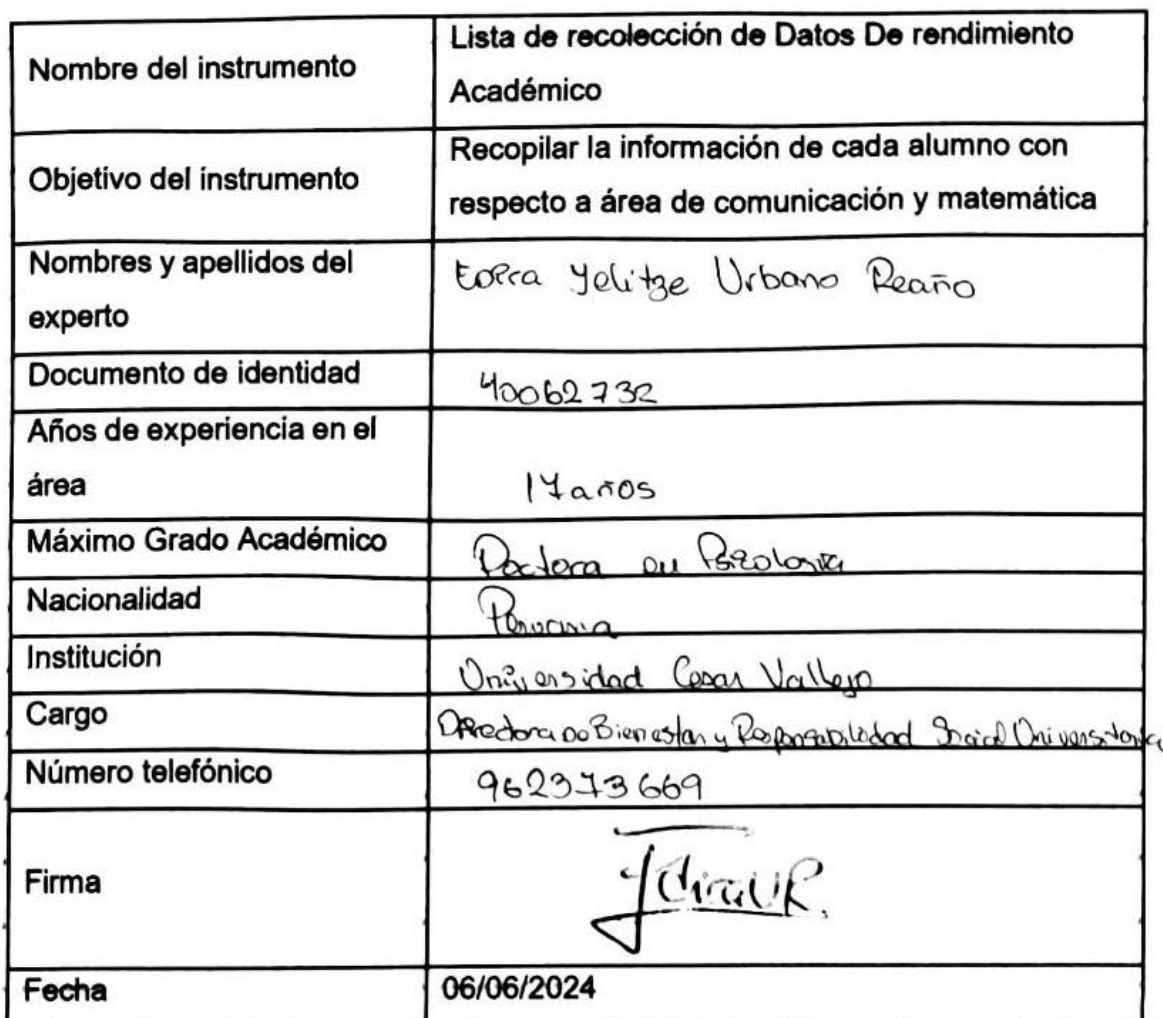 Nombre del instrumento
Lista de recolección de Datos De rendimiento
Académico
Objetivo del instrumento
Recopilar la información de cada alumno con
respecto a área de comunicación y matemática
Nombres y apellidos del
experto
Yelitze Urbano Reaño
Documento de identidad
40062732
Años de experiencia en el
área
17 años
Máximo Grado Académico
Doctora en Psicología
Nacionalidad
Peruana
Institución
Universidad Cesar Vallejo
Cargo
Directora de Bienestar y Responsabilidad Social Universitaria
Número telefónico
962373669
Firma
Fecha
06/06/2024